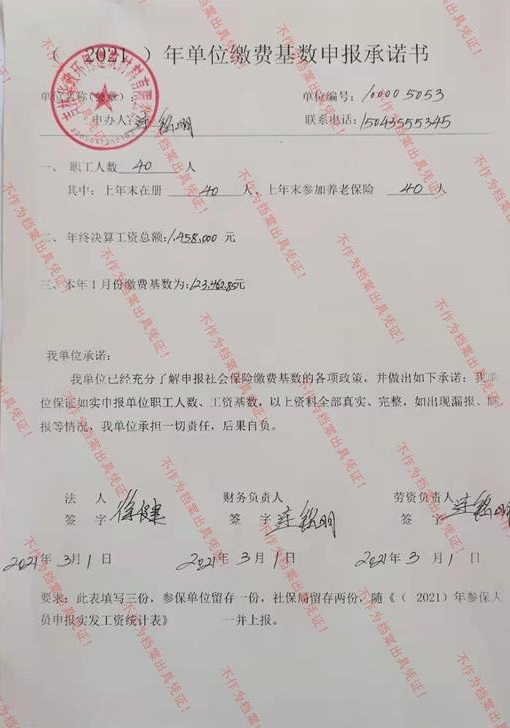 （ 2021 ）年单位缴费基数申报承诺书
单位名称（公章） 单位编号：100005053
申办人： 联系电话：15043555345
一、 职工人数 40 人
其中：上年末在册 40 人、上年末参加养老保险 40 人
二、年终决算工资总额：1,458,000 元
三、本年1月份缴费基数为：123,462.85元
我单位承诺：
我单位已经充分了解申报社会保险缴费基数的各项政策，并做出如下承诺：我单
位保证如实申报单位职工人数、工资基数，以上资料全部真实、完整，如出现漏报、瞒
报等情况，我单位承担一切责任，后果自负。
法 人 财务负责人 劳资负责人
签 字 徐健 签 字 签 字
2021年 3月 1日 2021年 3月 1日 2021年 3月 1日
要求：此表填写三份，参保单位留存一份，社保局留存两份，随《（ 2021）年参保人
员申报实发工资统计表》 一并上报。
不作为档案出具凭证！